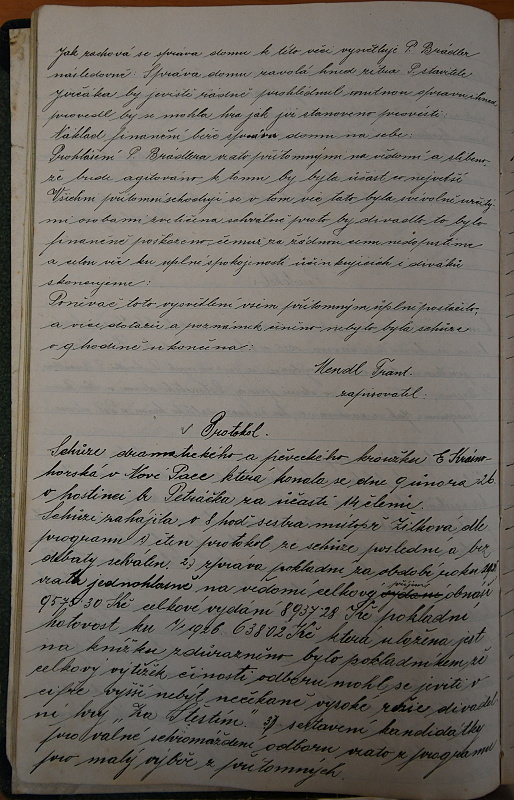 Jak zachová se správa domu k této věci vysvětluje P. Brádler
následovně: Správa domu zavolá hned zítra P. stavitele
by jeviště řádně prohlédnul nutnou správu ihned
provedl by se mohla hra jak jest stanoveno prováděti:
Náklad finanční béře správa domu na sebe:
Prohlášení P. Brádlera vzato přítomnými na vědomí a slíbeno
že bude agitováno k tomu by byla účast co největší
Všichni přítomní schodují se v tom věc tato byla
mi osobami zveličena schválně proto by divadlo to bylo
finančně poškozeno, čemuž za žádnou cenu nedopustíme
a celou věc ku úplné spokojenosti účinkujících i diváků
skoncujeme:
Poněvač toto vysvětlení všem přítomným úplně postačilo,
a více dotazů a poznámek činěno nebylo byla schůze
o 9 hodině ukončena:
Mendl Frant.
zapisovatel:
Protokol.
Schůze dramatického a pěveckého kroužku E Krásno-
horská v Nové Pace která konala se dne 9 února 26
v hostinci k Petráčka za účasti 14 členů.
Schůzi zahájila v 8 hod sestra místopř Zilková dle
programu 1) čten protokol ze schůze poslední a bez
debaty schválen 2) zpráva pokladní za období roku
vzata jednohlasně na vědomí celkový příjem obnáší
9575 30 Kč celkové vydání 8937 28 Kč pokladní
hotovost ku 1/1 1926 638 02 Kč která uložena jest
na knížku zdůrazněno bylo pokladníkem že
celkový výtěžek činosti odboru mohl se jeviti v
cifře vyšší nebýt nečekané vysoké režie divadel
ní hry „Za Štěstím". 3) sestavení kandidátky
pro valné schromáždění odboru vzato z programu
pro malý výběr z přítomných.